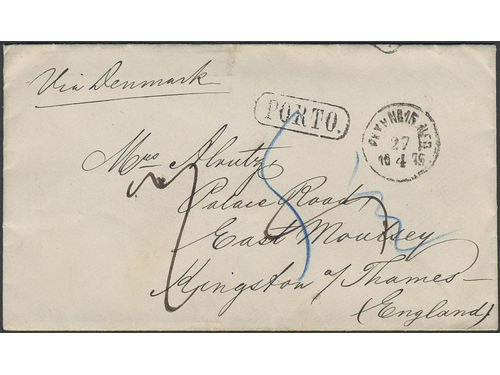 Via Denmark
PORTO.
27
10 4 75
Mrs
Palace Road,
East Moulsey
Kingston o/ Thames
(England)